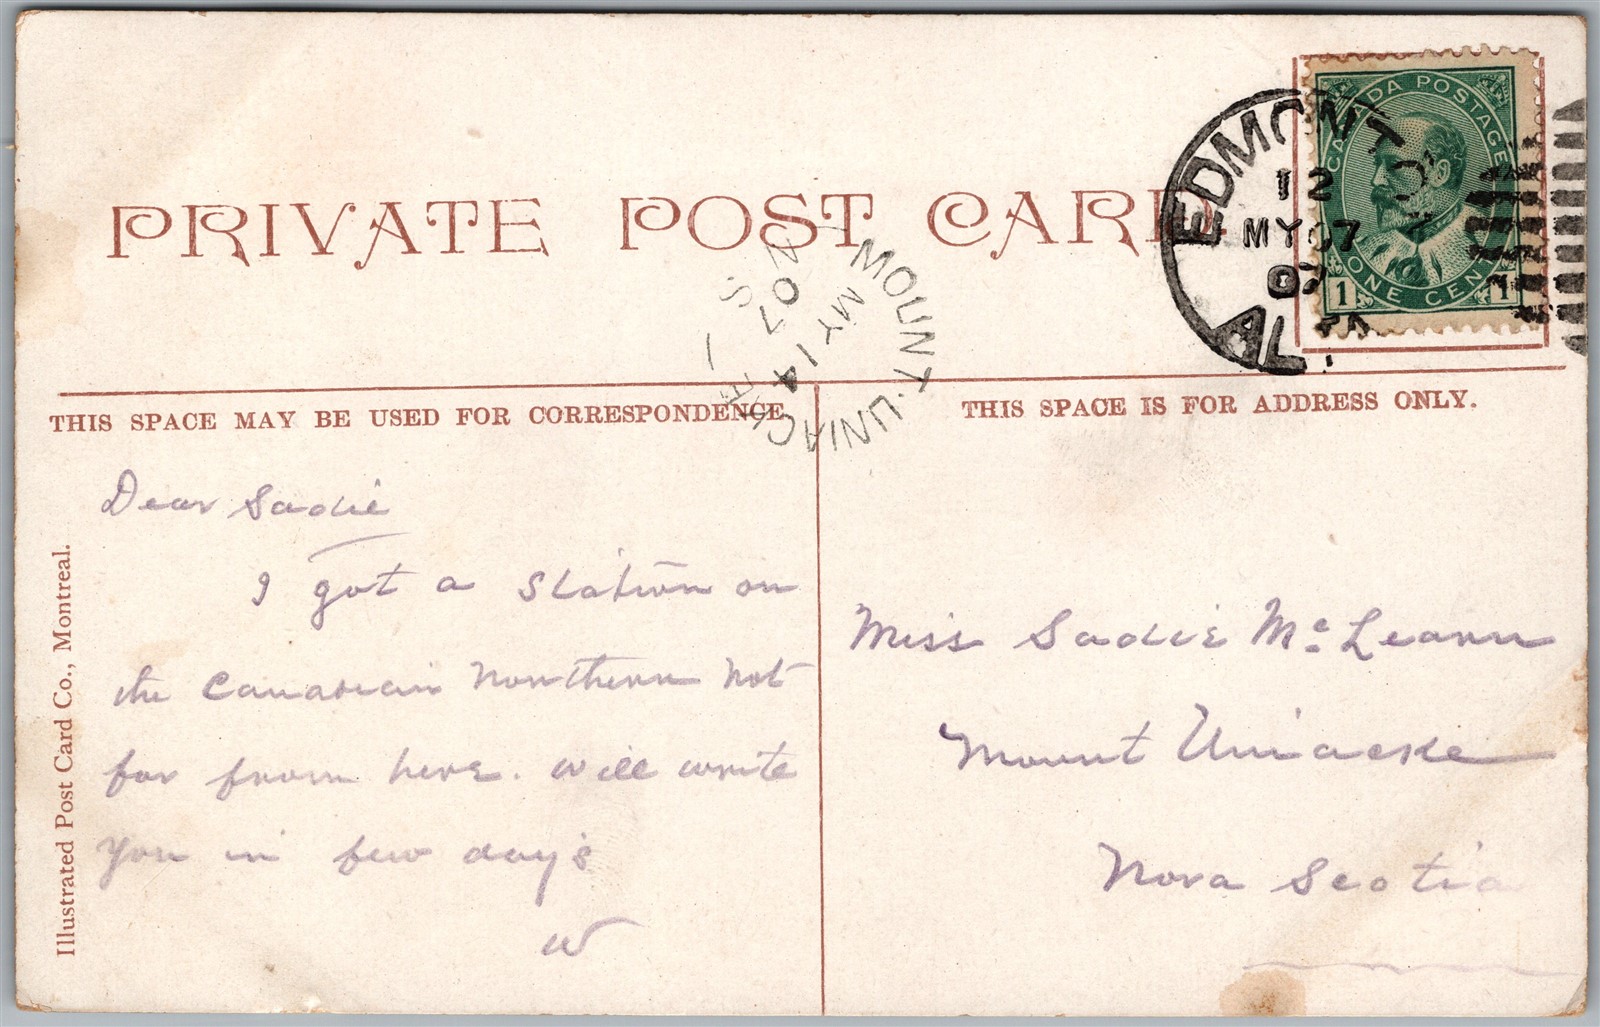 PRIVATE POST CARD
CANADA POSTAGE
1 ONE CENT 1
EDMONTON
12
MY 07
07
ALTA.
MOUNT-UNIACKE
N.S.
MY 14
07
THIS SPACE MAY BE USED FOR CORRESPONDENCE
THIS SPACE IS FOR ADDRESS ONLY.
Dear Sadie
I got a station on
the Canadian Northern not
far from here. Will write
you in few day's
W
Miss Sadie Mc Leann
Mount Uniacke
Nova Scotia
Illustrated Post Card Co., Montreal.